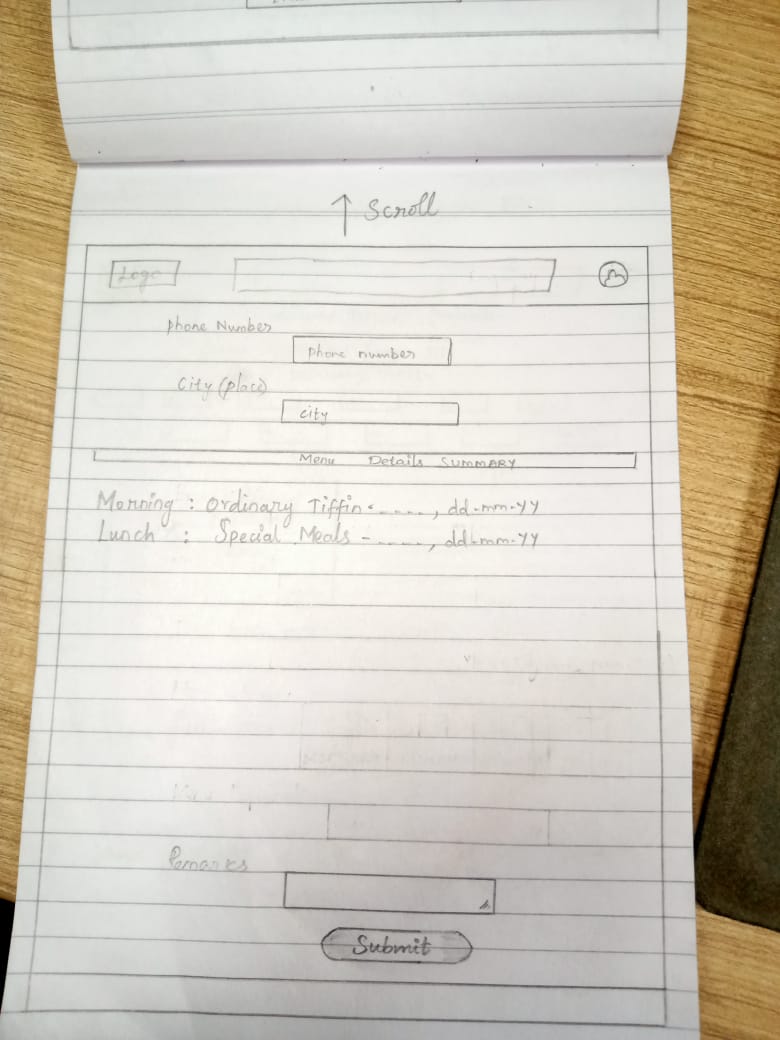 Scroll
Logo
Phone Number
phone number
City (place)
city
Menu Details SUMMARY
Morning : Ordinary Tiffin - ----, dd-mm-yy
Lunch : Special Meals - ----, dd-mm-yy
Remarks
Submit